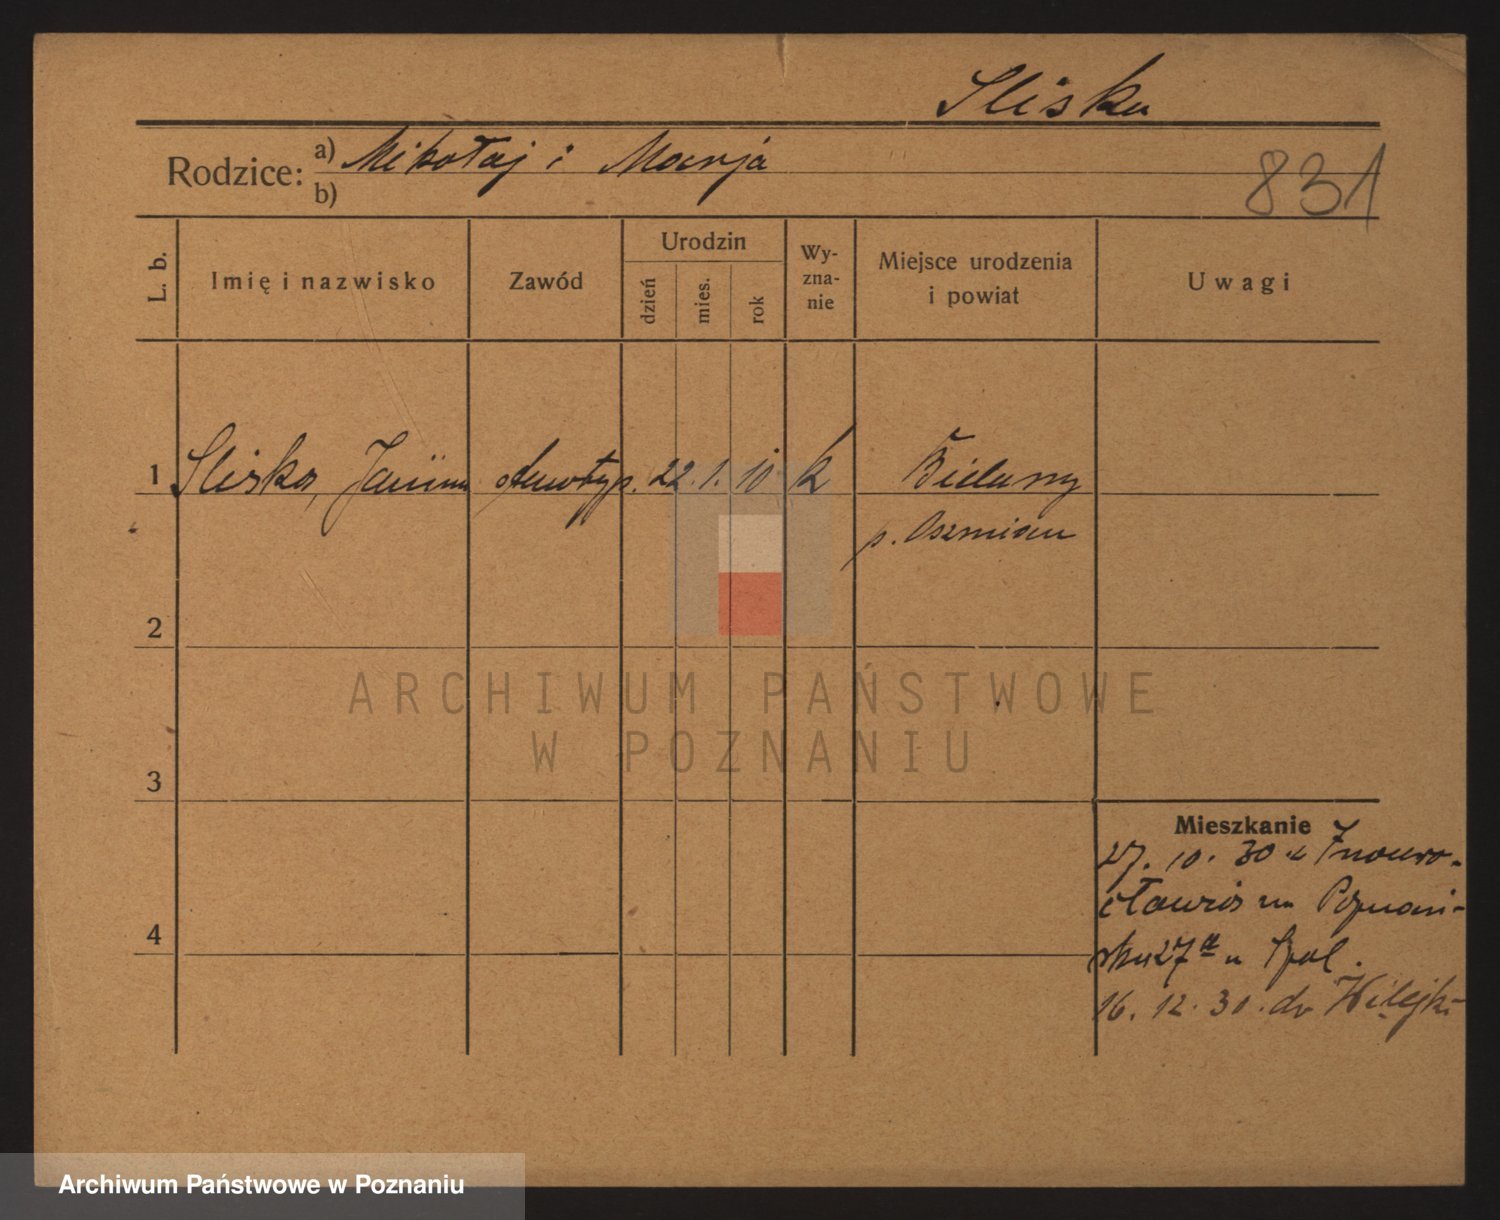 Sliska
Rodzice: a) Mikołaj i Marja
b)
831
L. b.
Imię i nazwisko
Zawód
Urodzin
dzień
mies.
rok
Wy-
zna-
nie
Miejsce urodzenia
i powiat
Uwagi
1 Sliska, Janina stenotyp. 22. 1. 10 k
p. Oszmiana
2
3
4
Mieszkanie
27. 10. 30 z Inowro-
cławia na Poznań-
ska 27a u
16. 12. 30. do Wilejki
ARCHIWUM PAŃSTWOWE
W POZNANIU
Archiwum Państwowe w Poznaniu